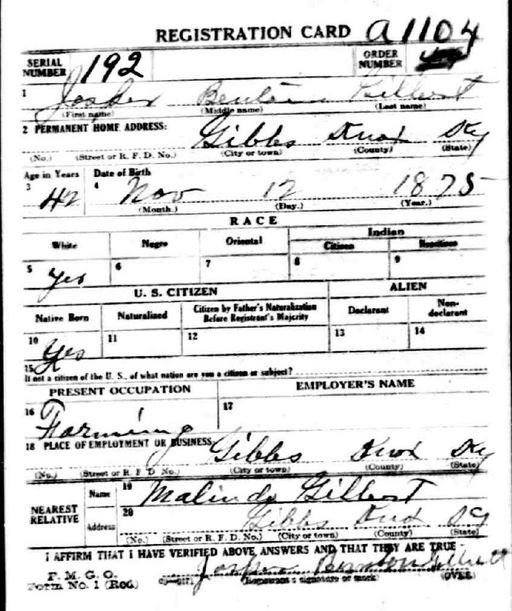 REGISTRATION CARD A1104
SERIAL NUMBER 192 ORDER NUMBER
1 Jasper Benton Gilbert
(First name) (Middle name) (Last name)
2 PERMANENT HOME ADDRESS: Gibbs Knox Ky
(No.) (Street or R. F. D. No.) (City or town) (County) (State)
Age in Years Date of Birth
3 42 4 Nov 12 1875
(Month.) (Day.) (Year.)
RACE
White Negro Oriental Indian
Citizen Noncitizen
5 Yes 6 7 8 9
U. S. CITIZEN ALIEN
Native Born Naturalized Citizen by Father's Naturalization Before Registrant's Majority Declarant Non-declarant
10 Yes 11 12 13 14
15
If not a citizen of the U. S., of what nation are you a citizen or subject?
PRESENT OCCUPATION EMPLOYER'S NAME
16 Farming 17
18 PLACE OF EMPLOYMENT OR BUSINESS Gibbs Knox Ky
(No.) (Street or R. F. D. No.) (City or town) (County) (State)
NEAREST RELATIVE Name 19 Malinda Gilbert
Address 20 Gibbs Knox Ky
(No.) (Street or R. F. D. No.) (City or town) (County) (State)
I AFFIRM THAT I HAVE VERIFIED ABOVE ANSWERS AND THAT THEY ARE TRUE
P. M. G. O.
Form No. 1 (Red) Jasper Benton Gilbert
(Registrant's signature or mark) (OVER)